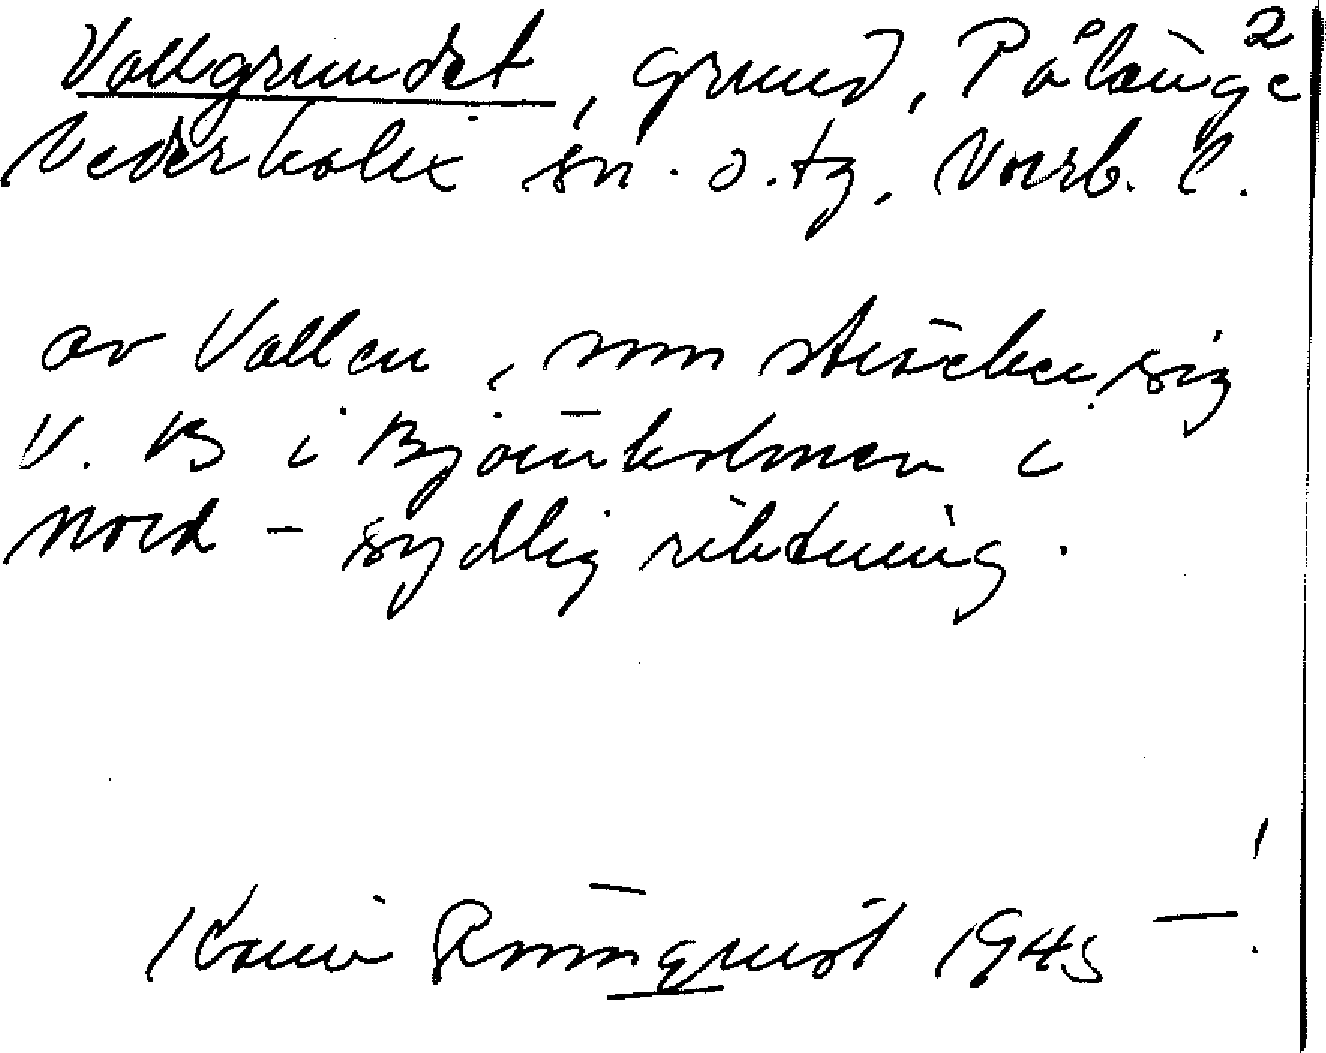 Vallgrundet, grund, Pålänge 2
Nederkalix sn. o. tg, Norrb. l.
av Vallen, som sträcker sig
V. B i Björnholmen i
nord - sydlig riktning.
Karin Rönnqvist 1945